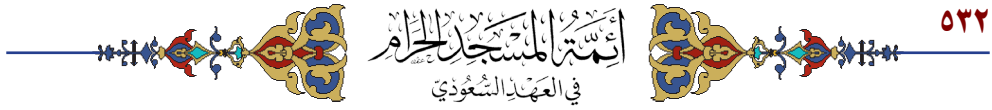 ٥٣٢
أَئِمَّةُ المَسْجِدِ الحَرَامِ
فِي العَهْدِ السُّعُودِيِّ